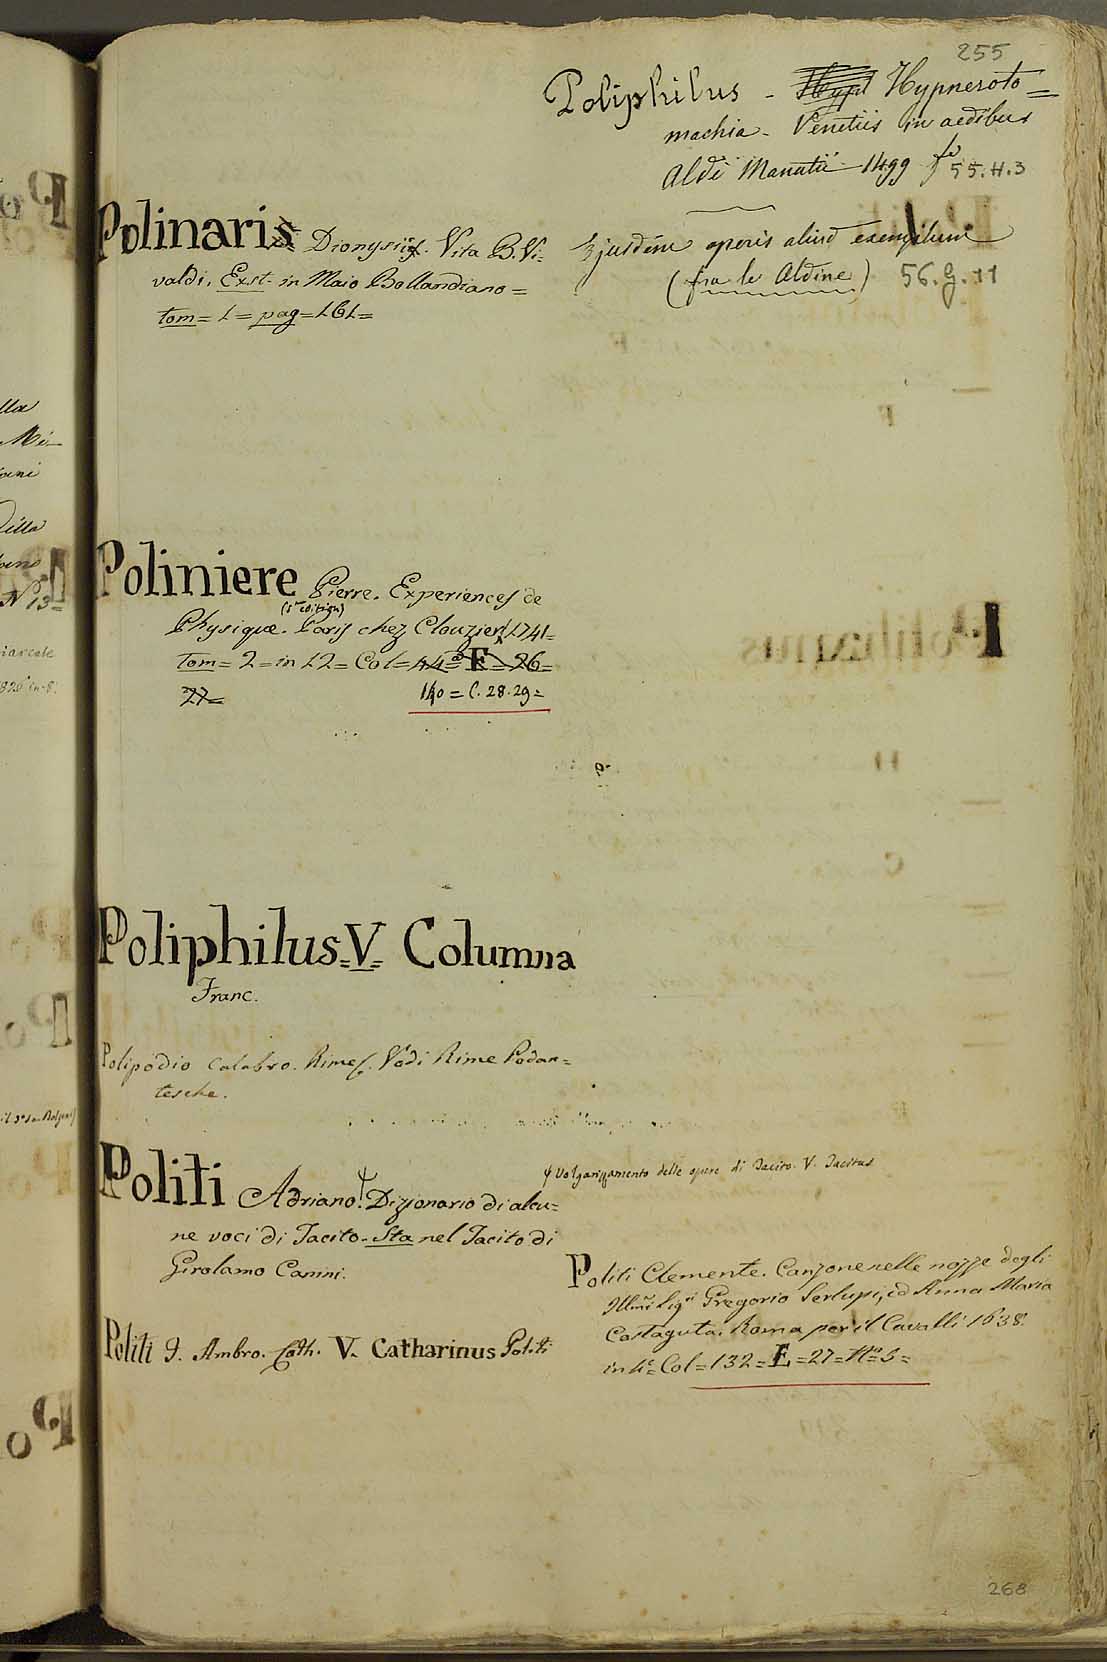 255
Poliphilus - Hypnesoto=
machia - Venetiis in aedibus
Aldi Manutii - 1499 fo 55.H.3
Ejusdem operis aliud exemplum
(fra le Aldine) 56.G.11
Polinaris Dionysii. Vita B. Vi-
valdi. Exst. in Maio Bollandiano =
tom = 1 = pag = 161 =
Poliniere Pierre. Experiences de
(5me edition)
Physique. Paris chez Clouzier 1741=
Tom = 2 = in 12 = Col = 44 = F = 26 =
27 = 140 = C. 28. 29 =
Poliphilus = V = Columna
Franc.
Polipodio Calabro. Rime. Vedi Rime Pedan=
tesche.
Politi Adriano. Dizionario di alcu=
ne voci di Tacito. Sta nel Tacito di
Girolamo Canini.
Politi F. Ambro. Cath. V. Catharinus Politi
Volgarizzamento delle opere di Tacito. V. Tacitus
Politi Clemente. Canzone nelle nozze degli
Illmi Sigri Gregorio Serlupi, ed Anna Maria
Costaguta. Roma per il Cavalli 1638.
in 4o = Col = 132 = E = 27 = No 5 =
268